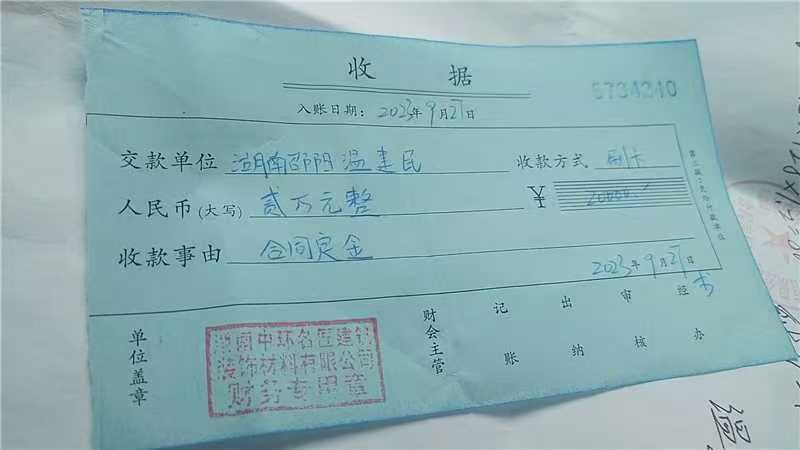 收 据
5734240
入账日期：2023年9月27日
交款单位 湖南邵阳温建民 收款方式 刷卡
人民币(大写) 贰万元整 ¥ 20000.
收款事由 合同定金
2023年9月27日
单位盖章 财会主管 记账 出纳 审核 经办
湖南中环名匠建筑
装饰材料有限公司
财务专用章